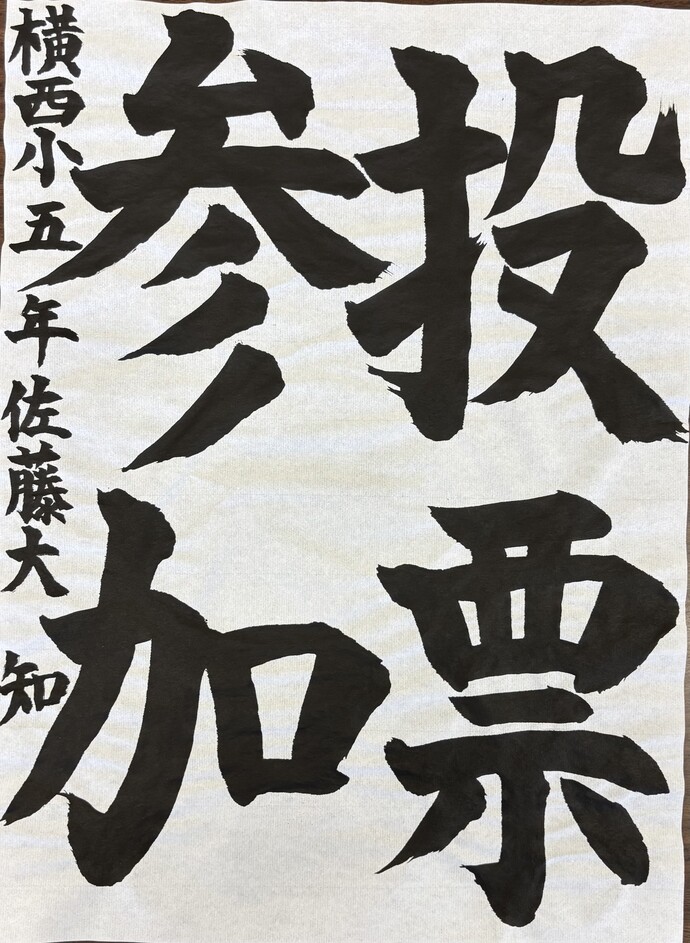 投票
参加
横西小五年佐藤大知